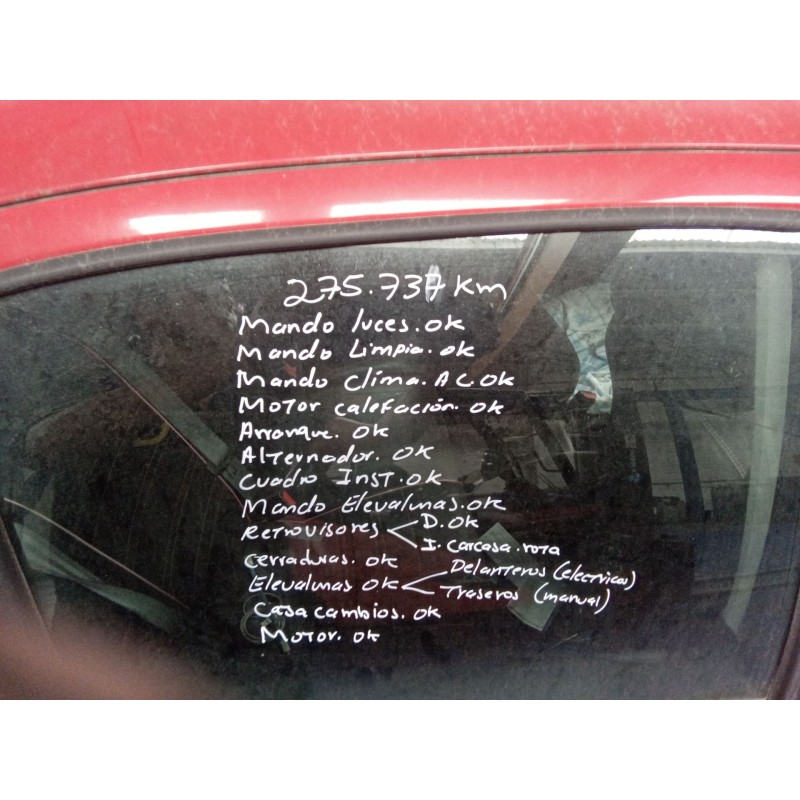 275.737 Km
Mando luces. ok
Mando Limpia. ok
Mando clima. A C. OK
Motor calefación. OK
Arranque. OK
Alternador. OK
Cuadro Inst. ok
Mando Elevalunas. ok
Retrovisores D. OK
I. carcasa. rota
cerraduras. ok
Delanteros (electricos)
Elevalunas OK
Traseros (manual)
Casa cambios. ok
Motor. ok